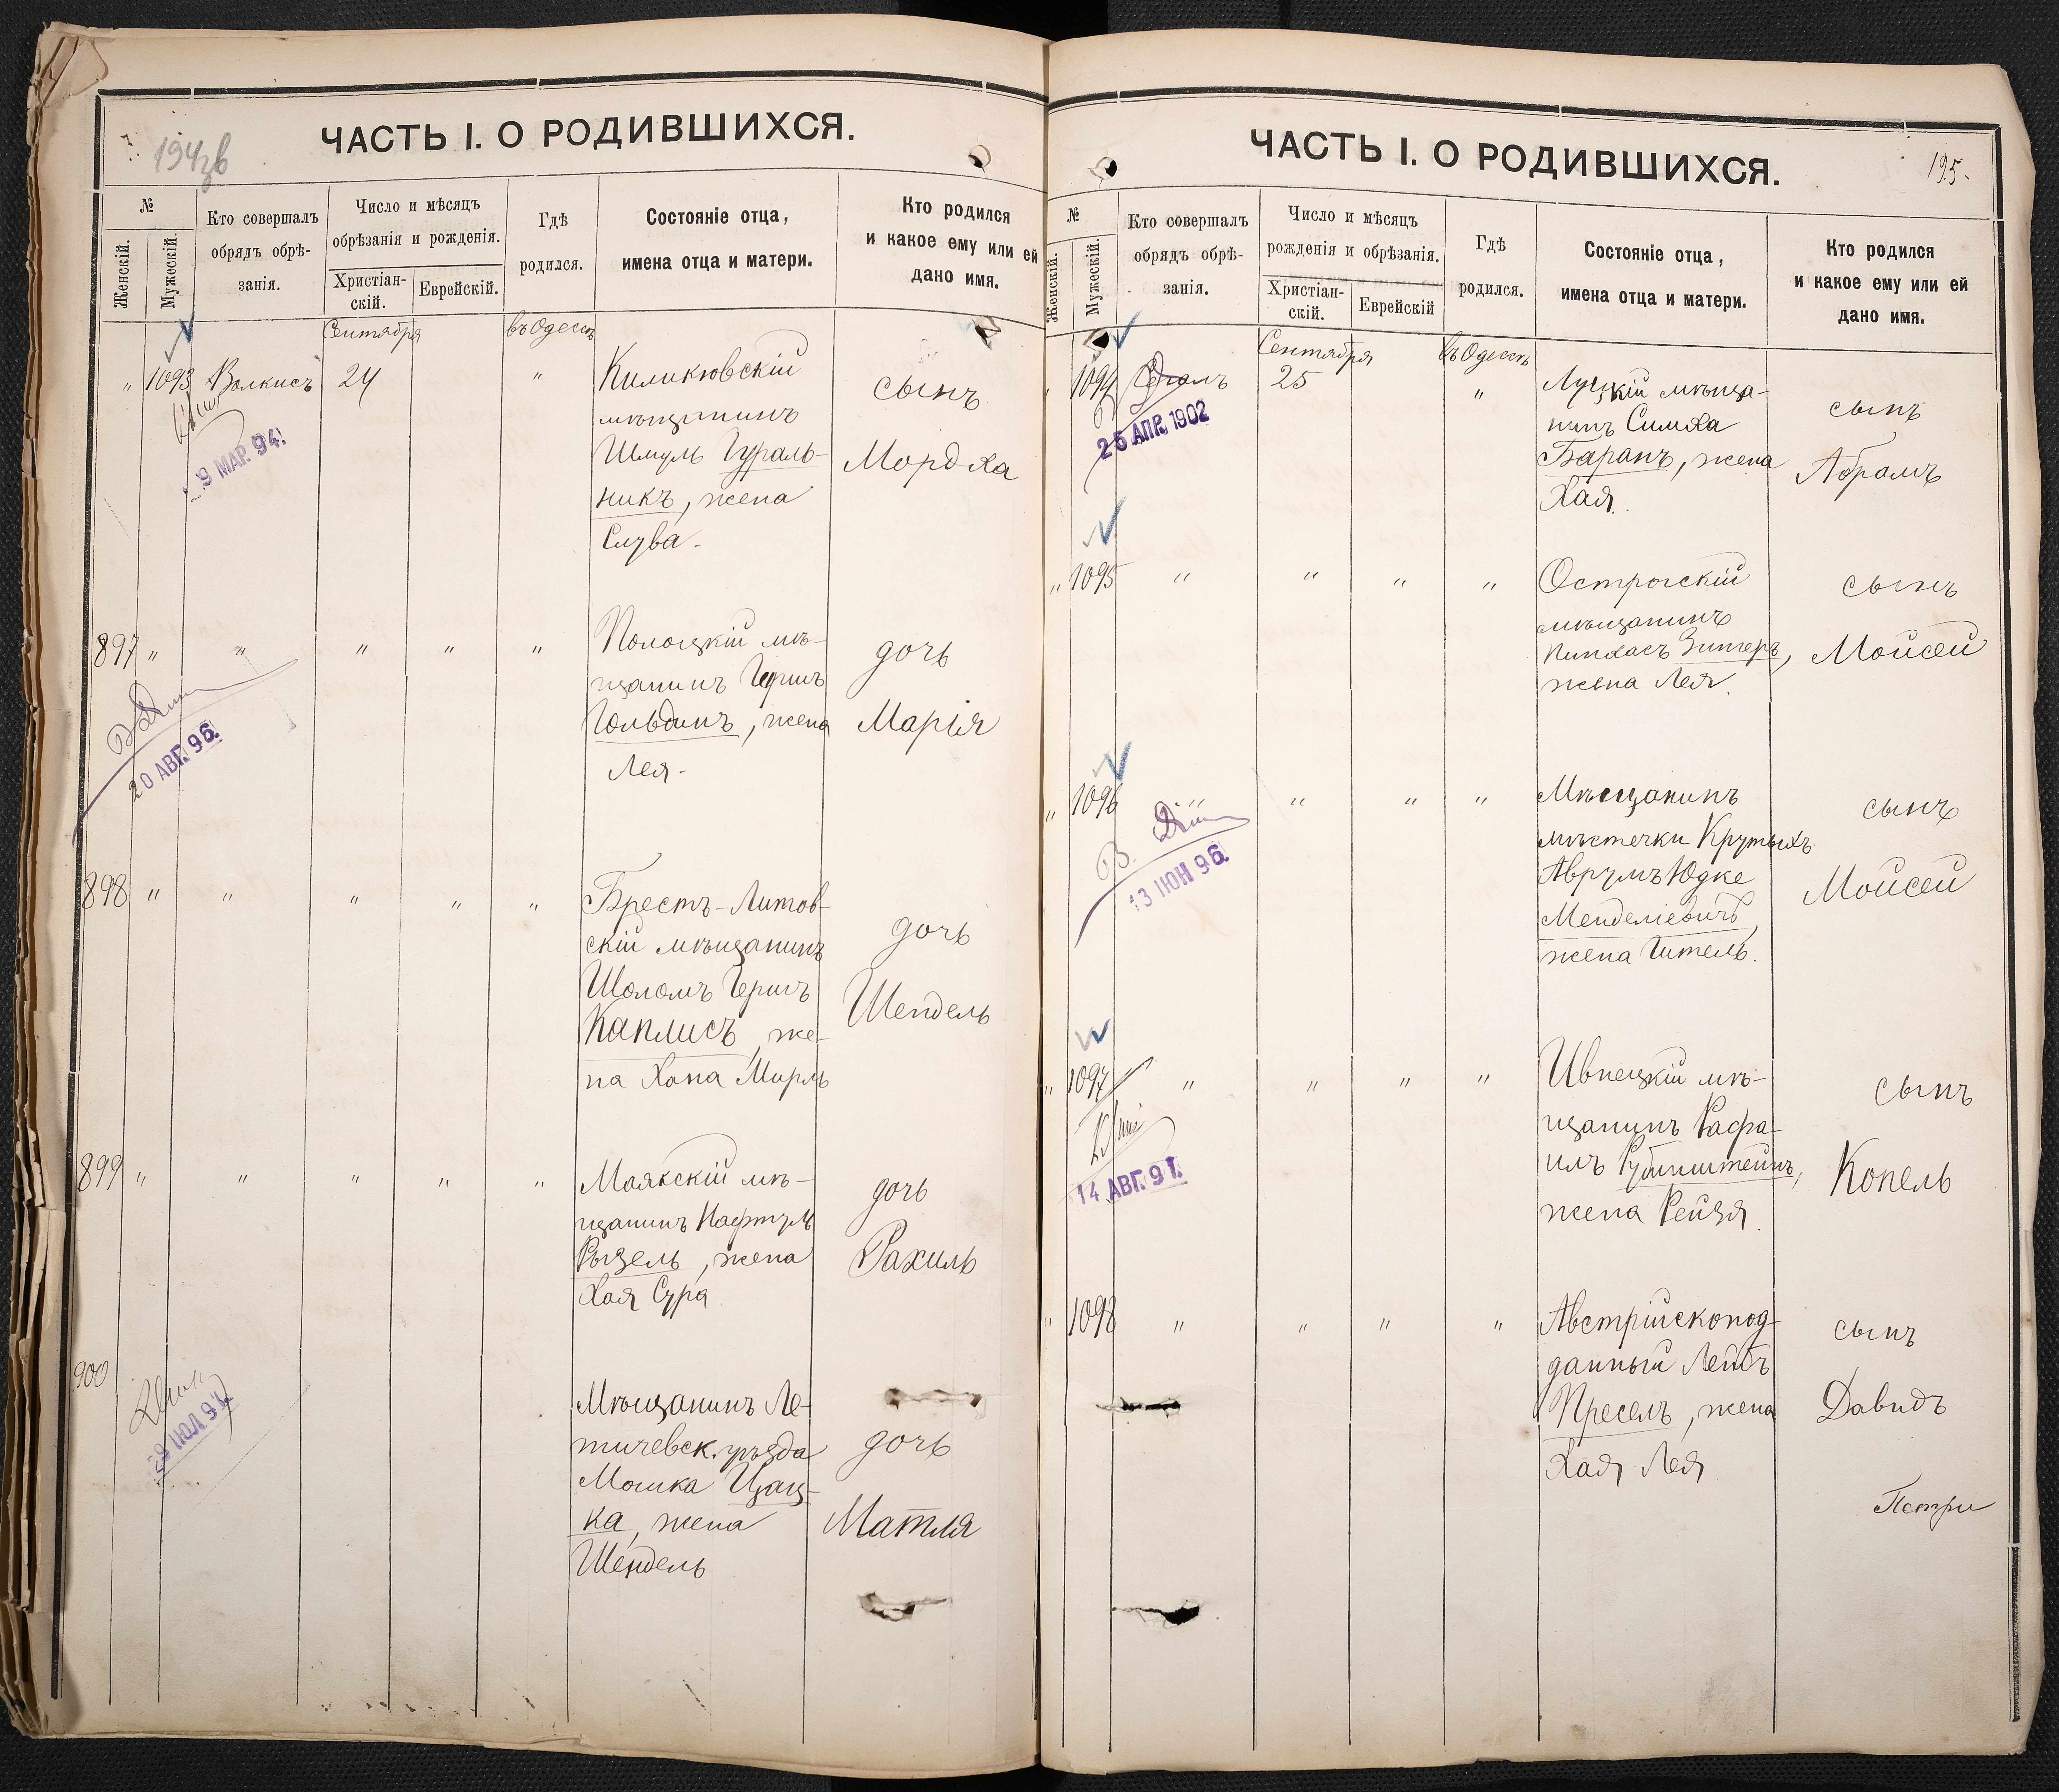 194 зв
ЧАСТЬ I. О РОДИВШИХСЯ.
№
Женскій.
Мужескій.
Кто совершалъ
обрядъ обрѣ-
занія.
Число и мѣсяцъ
обрѣзанія и рожденія.
Христіан-
скій.
Еврейскій.
Гдѣ
родился.
Состояніе отца,
имена отца и матери.
Кто родился
и какое ему или ей
дано имя.
Сентября
въ Одессѣ
" 1093 Волкисъ 24 "
Киликювскій
мѣщанинъ
Шмуль Гураль-
никъ, жена
Слува.
сынъ
Мордха
9 МАР. 94.
897 " " " " "
Полоцкій мѣ-
щанинъ Гершъ
Гольдинъ, жена
Лея.
дочь
Марія
20 АВГ. 96.
898 " " " " "
Брестъ-Литов-
скій мѣщанинъ
Шоломъ Гершъ
Каплисъ, же-
на Хана Мирль
дочь
Шендель
899 " " " " "
Маякскій мѣ-
щанинъ Нафтулъ
Рызель, жена
Хая Сура
дочь
Рахиль
900
Мѣщанинъ Ле-
тичевск. уѣзда
Мошка Цац-
ка, жена
Шендель
дочь
Матля
ИЮЛ 94
195.
ЧАСТЬ I. О РОДИВШИХСЯ.
№
Женскій.
Мужескій.
Кто совершалъ
обрядъ обрѣ-
занія.
Число и мѣсяцъ
рожденія и обрѣзанія.
Христіан-
скій.
Еврейскій
Гдѣ
родился.
Состояніе отца,
имена отца и матери.
Кто родился
и какое ему или ей
дано имя.
Сентября
въ Одессѣ
" 1094 25 "
Луцкій мѣща-
нинъ Симха
Баранъ, жена
Хая.
сынъ
Абрамъ
25 АПР. 1902
" 1095 " " " "
Острогскій
мѣщанинъ
Пинхасъ Зингеръ,
жена Лея.
сынъ
Мойсей
" 1096 " " " "
Мѣщанинъ
мѣстечки Крутыхъ
Аврумъ Юдке
Менделіевичъ,
жена Гитель.
сынъ
Мойсей
13 ІЮН 96.
" 1097 " " " "
Ивнецкій мѣ-
щанинъ Рафа-
илъ Рубинштейнъ,
жена Рейзя.
сынъ
Копель
14 АВГ. 91.
" 1098 " " " "
Австрійскопод-
данный Лейбъ
Преселъ, жена
Хая Лея
сынъ
Давидъ